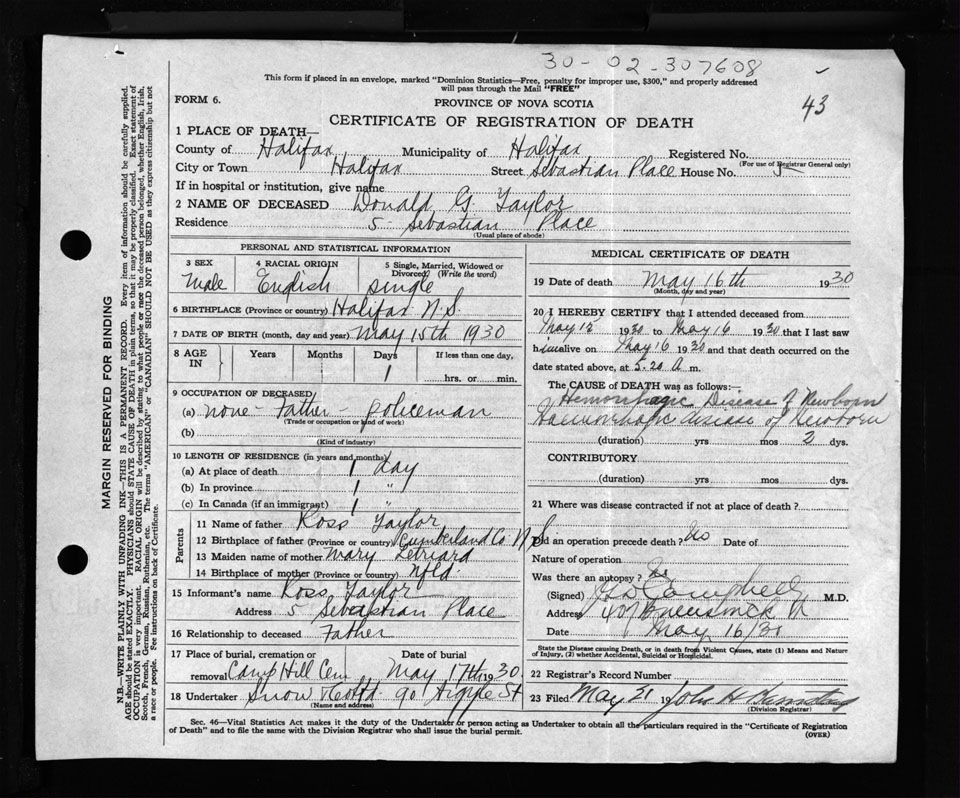 30-02-307608
This form if placed in an envelope, marked "Dominion Statistics—Free, penalty for improper use, $300," and properly addressed
will pass through the Mail "FREE"
43
FORM 6.
PROVINCE OF NOVA SCOTIA
CERTIFICATE OF REGISTRATION OF DEATH
1 PLACE OF DEATH—
County of Halifax Municipality of Halifax Registered No.
(For use of Registrar General only)
City or Town Halifax Street Sebastian Place House No. 5
If in hospital or institution, give name
2 NAME OF DECEASED Donald G. Taylor
Residence 5 Sebastian Place
(Usual place of abode)
PERSONAL AND STATISTICAL INFORMATION
3 SEX 4 RACIAL ORIGIN 5 Single, Married, Widowed or Divorced (Write the word)
Male English Single
6 BIRTHPLACE (Province or country) Halifax N.S.
7 DATE OF BIRTH (month, day and year) May 15th 1930
8 AGE IN Years Months Days If less than one day,
1 hrs. or min.
9 OCCUPATION OF DECEASED
(a) None - Father - policeman
(Trade or occupation or kind of work)
(b)
(Kind of industry)
10 LENGTH OF RESIDENCE (in years and months)
(a) At place of death 1 day
(b) In province 1 "
(c) In Canada (if an immigrant) 1 "
Parents
11 Name of father Ross Taylor
12 Birthplace of father (Province or country) Cumberland Co. N.S.
13 Maiden name of mother Mary
14 Birthplace of mother (Province or country) Nfld.
15 Informant's name Ross Taylor
Address 5 Sebastian Place
16 Relationship to deceased Father
17 Place of burial, cremation or removal Date of burial
Camp Hill Cem May 17th 1930
18 Undertaker Snow & Co Ltd. 90 Argyle St
(Name and address)
MEDICAL CERTIFICATE OF DEATH
19 Date of death May 16th 1930
(Month, day and year)
20 I HEREBY CERTIFY that I attended deceased from
May 15 1930 to May 16 1930 that I last saw
him alive on May 16 1930 and that death occurred on the
date stated above, at 5.20 A m.
The CAUSE OF DEATH was as follows:
Hemorrhagic Disease of Newborn
Haemorrhagic disease of Newborn
(duration) yrs mos 2 dys.
CONTRIBUTORY
(duration) yrs mos dys.
21 Where was disease contracted if not at place of death?
Did an operation precede death? No Date of
Nature of operation
Was there an autopsy?
(Signed) Campbell M.D.
Address 407 Brunswick
Date May 16/30
State the Disease causing Death, or in death from Violent Causes, state (1) Means and Nature
of Injury, (2) whether Accidental, Suicidal or Homicidal.
22 Registrar's Record Number
23 Filed May 21 19 John H
(Division Registrar)
Sec. 46—Vital Statistics Act makes it the duty of the Undertaker or person acting as Undertaker to obtain all the particulars required in the "Certificate of Registration
of Death" and to file the same with the Division Registrar who shall issue the burial permit.
(OVER)
MARGIN RESERVED FOR BINDING
N.B.—WRITE PLAINLY WITH UNFADING INK—THIS IS A PERMANENT RECORD. Every item of information should be carefully supplied.
AGE should be stated EXACTLY. PHYSICIANS should STATE CAUSE OF DEATH in plain terms, so that it may be properly classified. Exact statement of
OCCUPATION is very important. RACIAL ORIGIN will be described by stating to what people or race the deceased person belonged, whether English, Irish,
Scotch, French, German, Russian, Ruthenian, etc. The terms "AMERICAN" or "CANADIAN" SHOULD NOT BE USED as they express citizenship but not
a race or people. See instructions on back of Certificate.